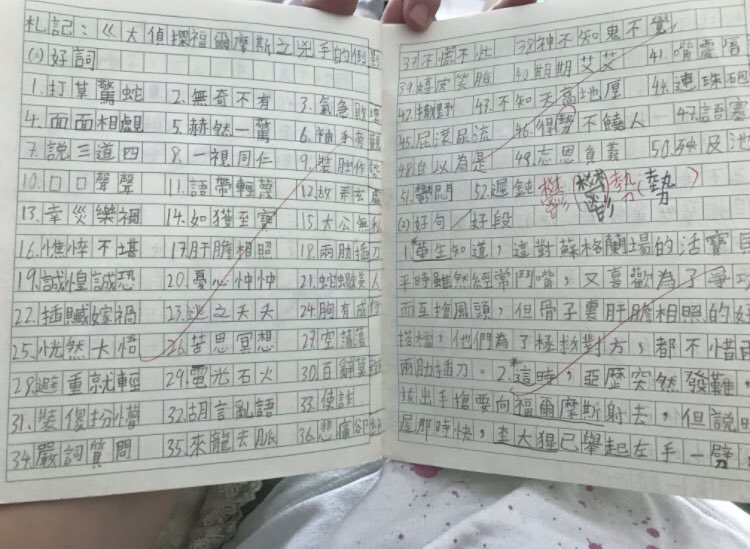 札記：《大偵探福爾摩斯之兇手的倒影
(1)好詞
1.打草驚蛇 2.無奇不有 3.氣急敗壞
4.面面相覷 5.赫然一驚 6.袖手旁觀
7.說三道四 8.一視同仁 9.裝腔作
10.口口聲聲 11.語帶輕蔑 12.故弄玄虛
13.幸災樂禍 14.如獲至寶 15.大公無私
16.憔悴不堪 17.肝膽相照 18.兩肋插刀
19.誠惶誠恐 20.憂心忡忡 21.蛇蠍美人
22.插贓嫁禍 23.逃之夭夭 24.胸有成竹
25.恍然大悟 26.苦思冥想 27.空蕩蕩
28.避重就輕 29.電光石火 30.百辭莫
31.裝傻扮懵 32.胡言亂語 33.使詐
34.嚴詞質問 35.來龍去脈 36.悲痛欲絕
37.不慌不忙 38.神不知鬼不覺
39.嬉皮笑臉 40.期期艾艾 41.嘴震唇
42.撒野 43.不知天高地厚 44.連珠砲
45.屁滾尿流 46.得勢不饒人 47.語塞
48.自以為是 49.忘恩負義 50.殃及池
51.鬱悶 52.遲鈍 鬱 勢(勢)
(2)好句/好段
1.*華生知道，這對蘇格蘭場的活寶貝
平時雖然經常鬥嘴，又喜歡為了爭功
而互搶風頭，但骨子裏肝膽相照的好
搭檔，他們為了拯救對方，都不惜
兩肋插刀。2.*這時，亞歷突然發難，
拔出手槍要向福爾摩斯射去，但說
遲那時快，李大猩已舉起左手一劈，